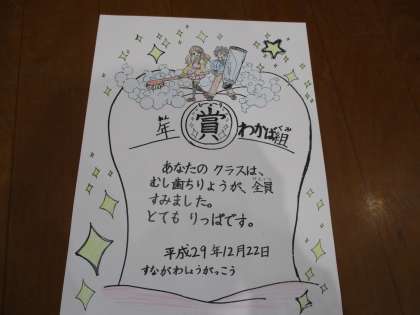 賞
わかば組
あなたの クラスは、
むし歯ちりょうが、全員
すみました。
とても りっぱです。
平成29年12月22日
すながわしょうがっこう